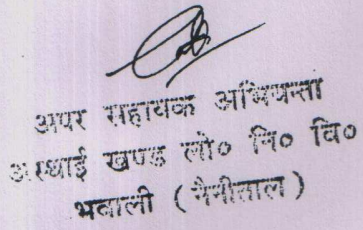 अपर सहायक अभियन्ता
अस्थाई खण्ड लो० नि० वि०
भवाली (नैनीताल)